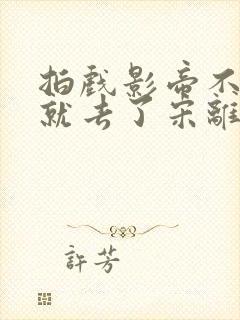 拍戲影帝不
就去了宋離
許芳